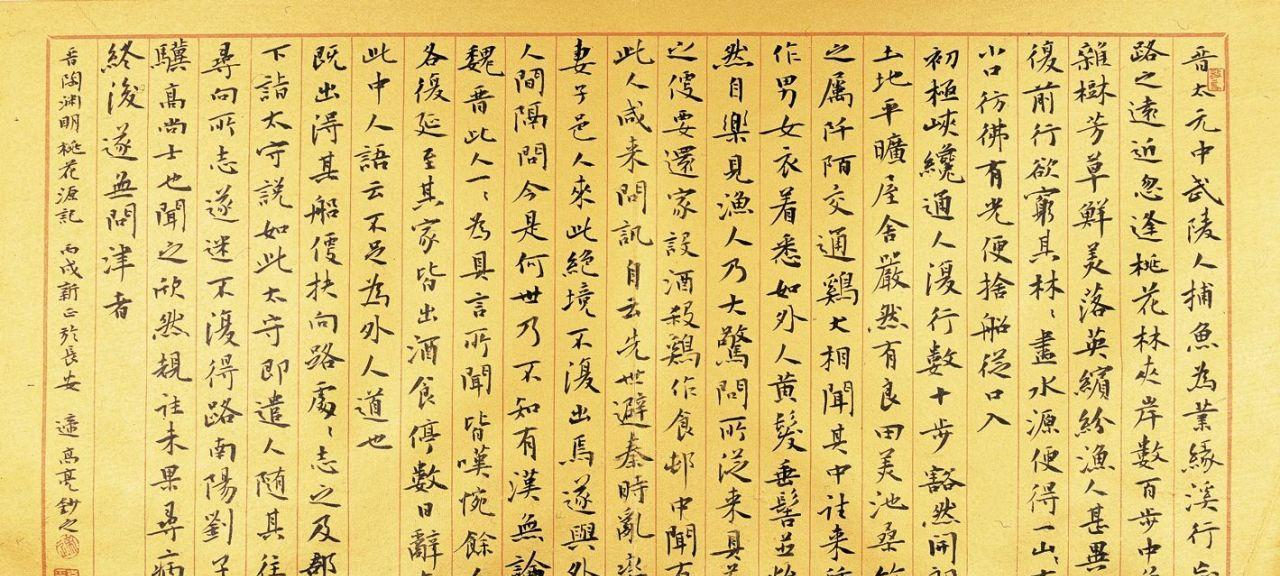 晋太元中武陵人捕魚為業緣溪行
路之遠近忽逢桃花林夾岸數百步中
雜樹芳草鮮美落英繽紛漁人甚異
復前行欲窮其林〻盡水源便得一山〻
小口彷彿有光便捨船從口入
初極峽纔通人復行數十步豁然開
土地平曠屋舍嚴然有良田美池桑
之属阡陌交通鷄犬相聞其中往来
作男女衣着悉如外人黄髮垂髫並怡
然自樂見漁人乃大驚問所從来具
之便要還家設酒殺鷄作食邨中聞
此人咸来問訊自云先世避秦時亂率
妻子邑人來此絶境不復出焉遂與外
人間隔問今是何世乃不知有漢無論
魏晋此人一〻為具言所聞皆嘆惋餘人
各復延至其家皆出酒食停數日辭
此中人語云不足為外人道也
既出得其船便扶向路處〻志之及郡
下詣太守説如此太守即遣人随其往
尋向所志遂迷不復得路南陽劉子
驥高尚士也聞之欣然規往未果尋病
終後遂無問津者
晋陶渊明桃花源記 丙戌新正於長安 高亮鈔之